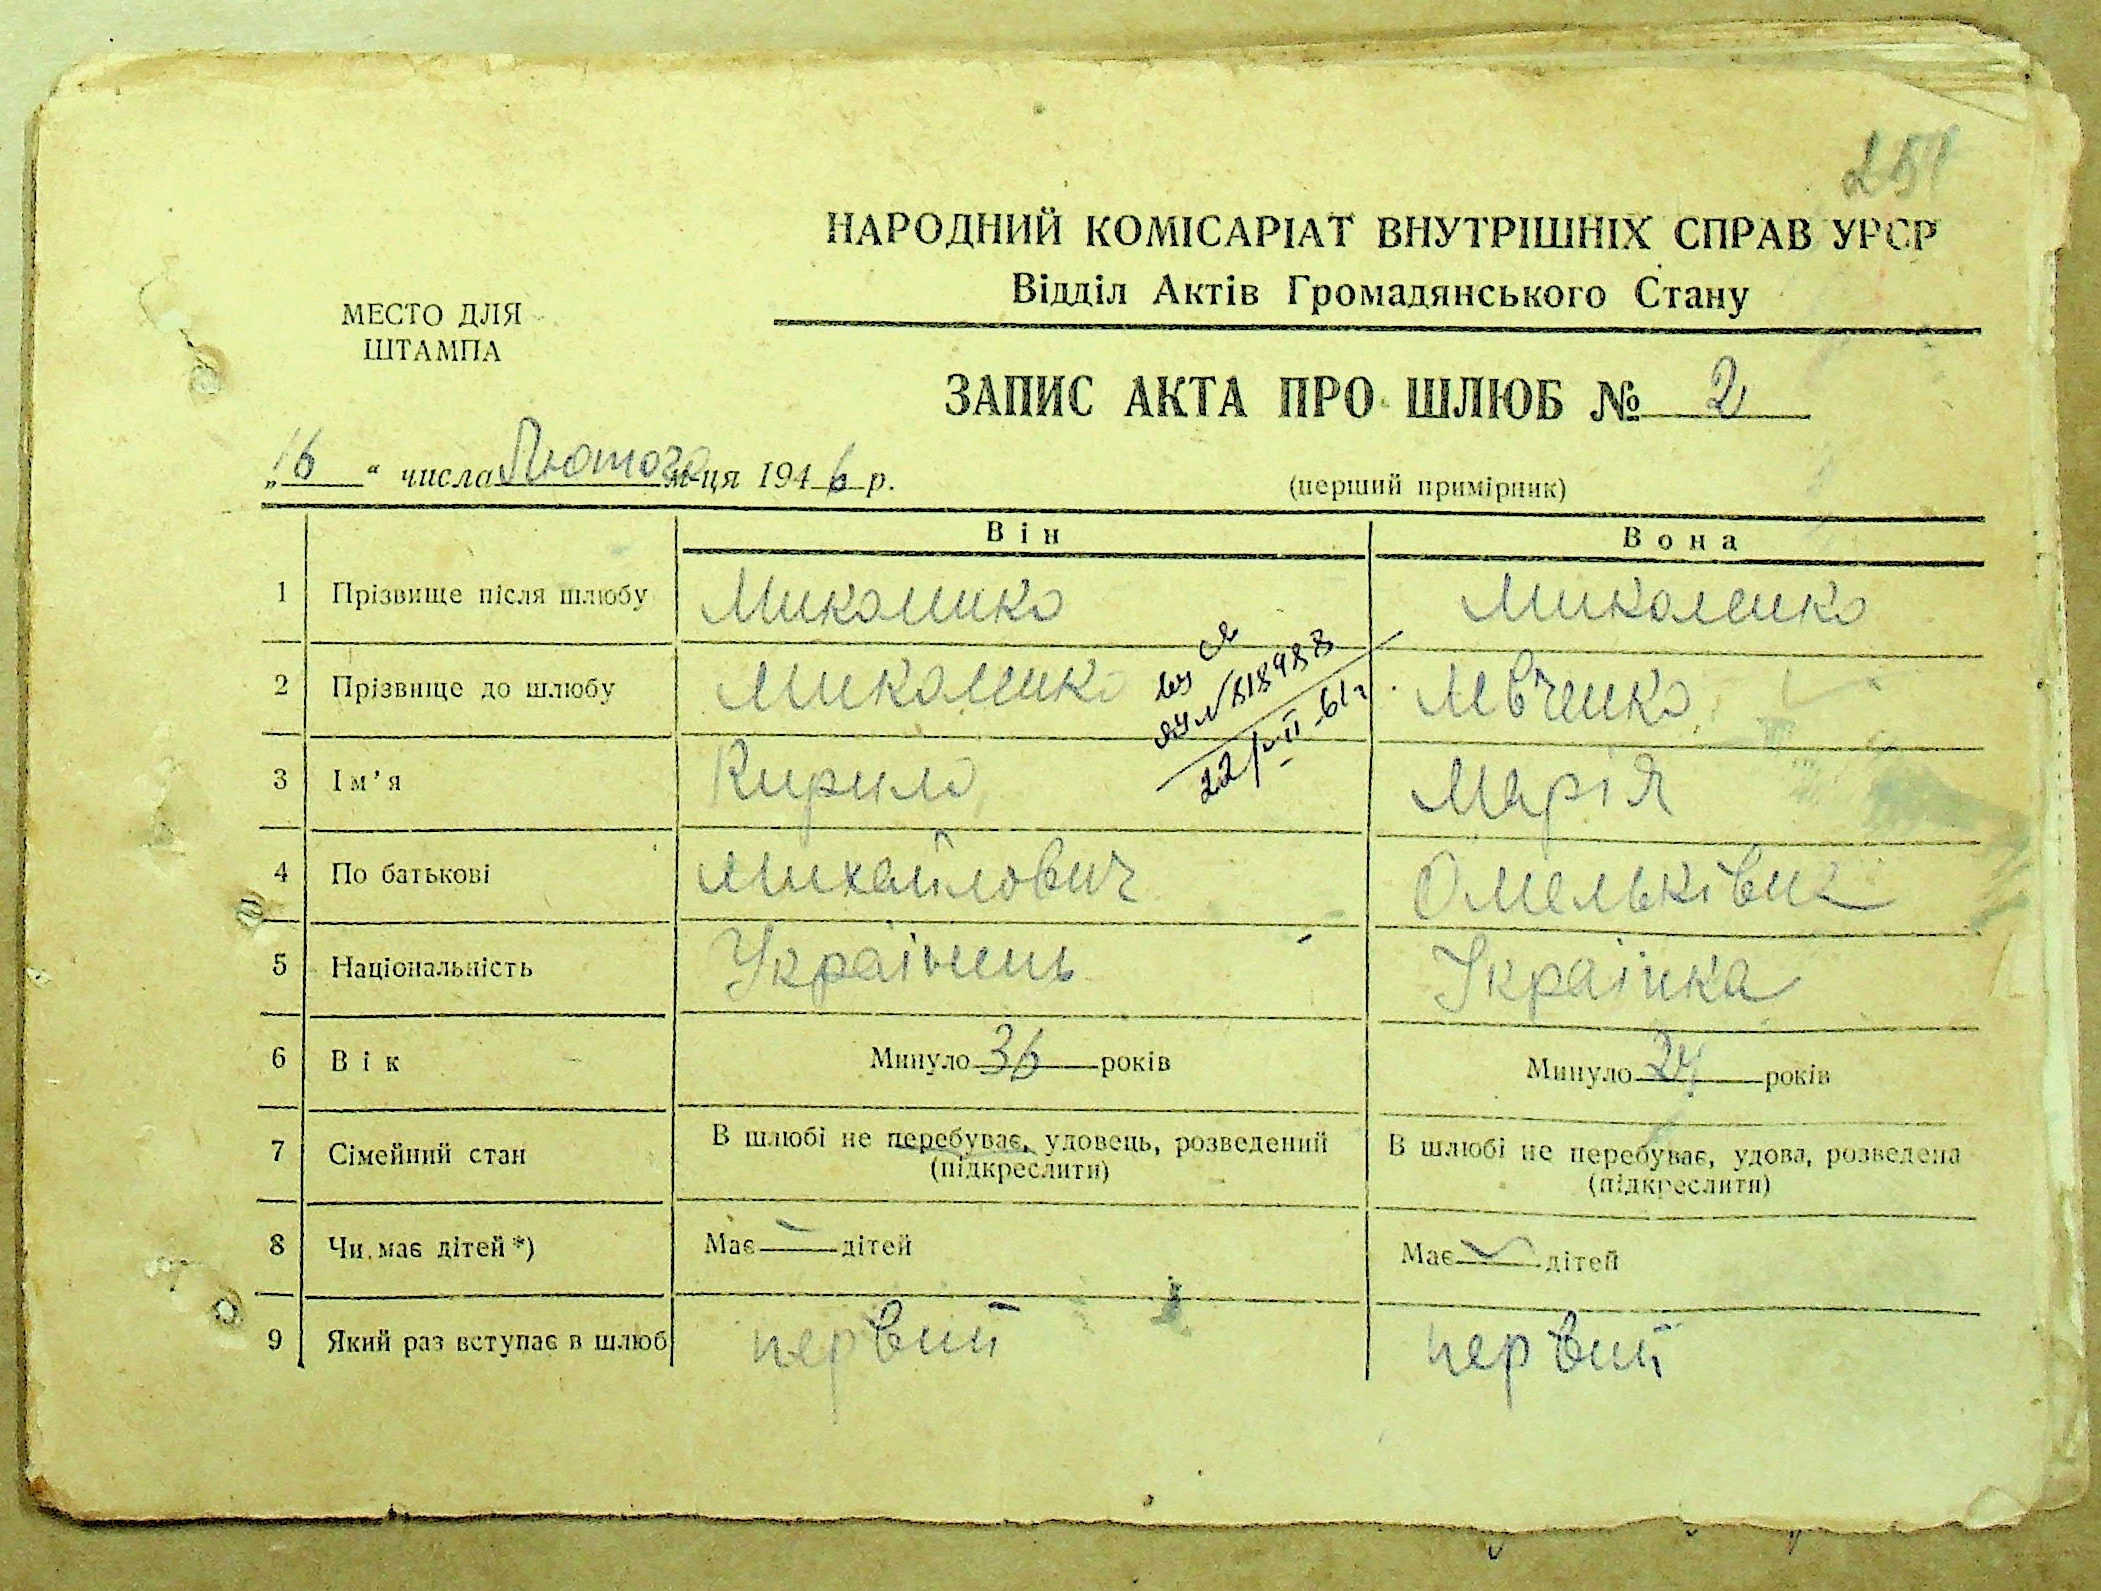 251
НАРОДНИЙ КОМІСАРІАТ ВНУТРІШНІХ СПРАВ УРСР
Відділ Актів Громадянського Стану
МЕСТО ДЛЯ
ШТАМПА
ЗАПИС АКТА ПРО ШЛЮБ № 2
„16“ числа Лютого м-ця 1946 р.
(перший примірник)
Він Вона
1 Прізвище після шлюбу Миколенко Миколенко
2 Прізвище до шлюбу Миколенко Левченко
818988
22/VII-61г.
3 Ім’я Кирило Марія
4 По батькові Михайлович Омельківна
5 Національність Українець Українка
6 Вік Минуло 36 років Минуло 24 років
7 Сімейний стан В шлюбі не перебуває, удовець, розведений В шлюбі не перебуває, удова, розведена
(підкреслити) (підкреслити)
8 Чи має дітей *) Має — дітей Має — дітей
9 Який раз вступає в шлюб первий первий